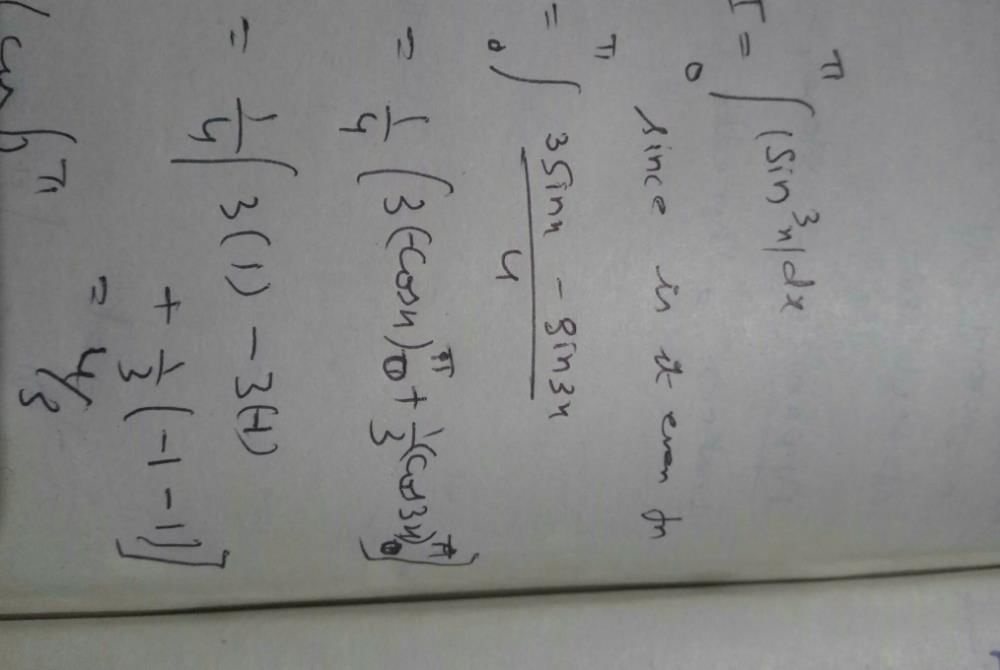 I = ∫₀^π |sin³x| dx
since is it even fn
= ∫₀^π (3 sin x - sin 3x)/4
= 1/4 [3(-cos x)₀^π + 1/3 (cos 3x)₀^π]
= 1/4 [3(1) - 3(-1)
+ 1/3 (-1 - 1)]
= 4/3